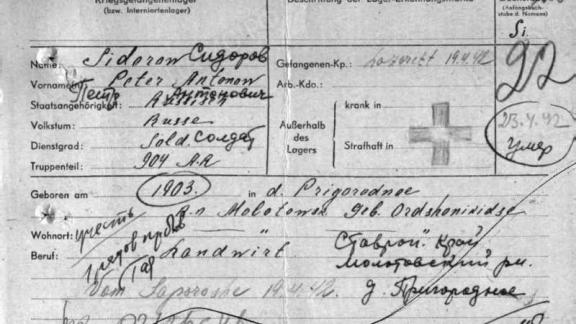 Kriegsgefangenenlager
(bzw. Interniertenlager)
Beschriftung der Lager-Erkennungsmarke
(Anfangsbuch-
stabe d. Namens)
Si.
Name: Sidorow Сидоров
Gefangenen-Kp.: Lazarett 19.4.42
92
Vorname: Peter Antonow
Петр Антонович
Arb.-Kdo.:
Staatsangehörigkeit: Russisch
krank in
23.4.42
умер
Volkstum: Russe
Außerhalb
des Lagers
Dienstgrad: Sold. Солдат
Strafhaft in
Truppenteil: 904 A.R
Geboren am 1903. in d. Prigorodnoe
R-n Molotowsk Geb. Ordshonikidse
Wohnort: "
Beruf: Landwirt
Ставроп. Край
Молотовский рн.
д Пригородное
учесть
рядов
Vom Saporoshe 19.4.42.